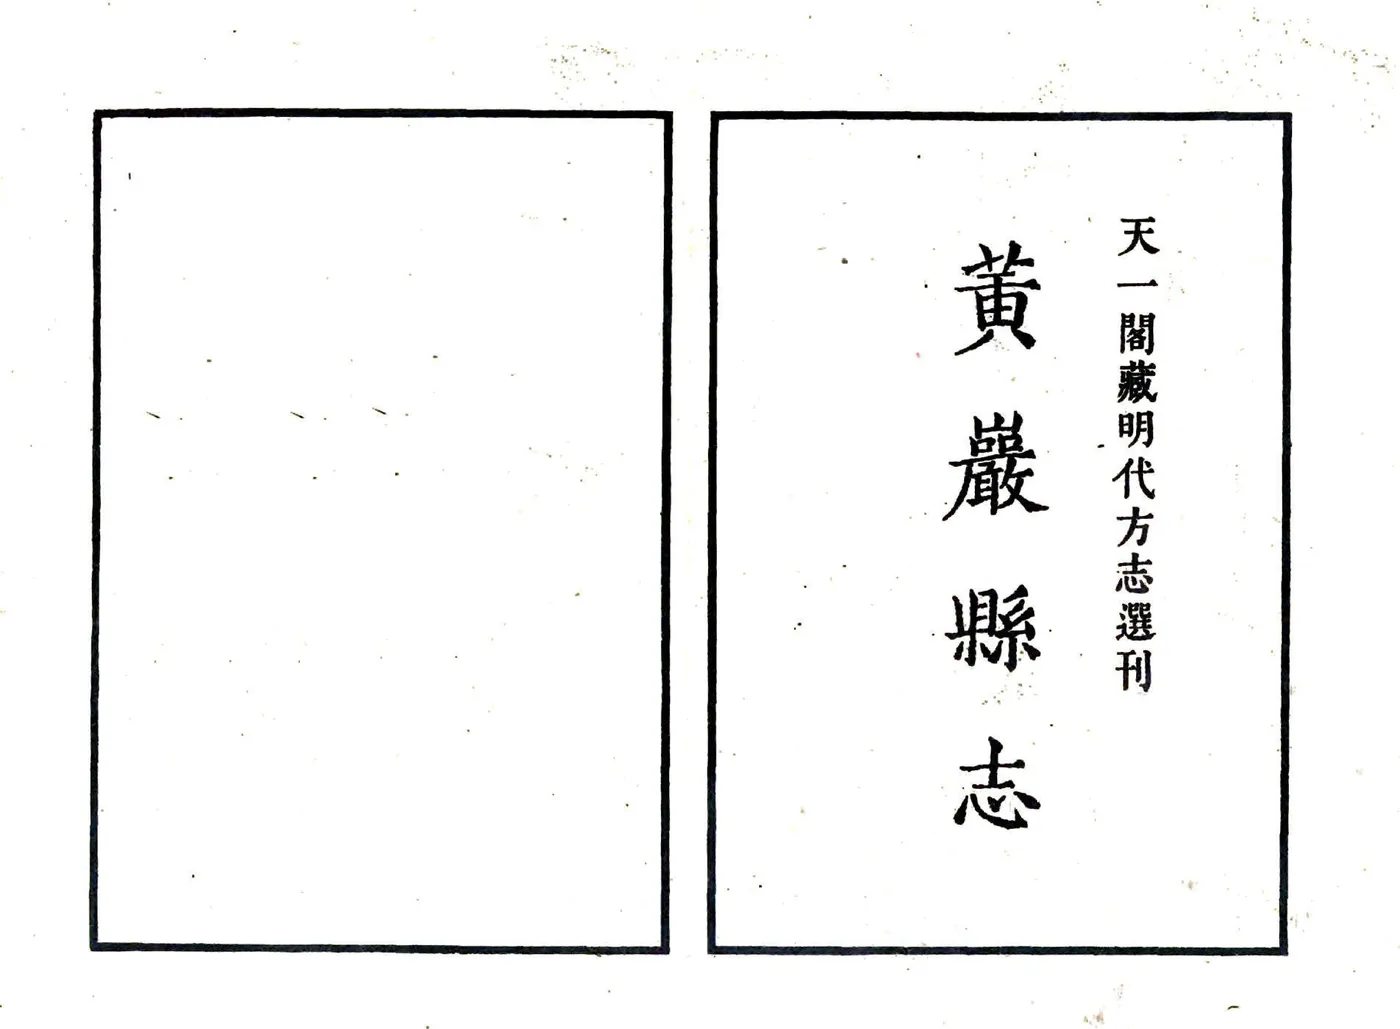 天一閣藏明代方志選刊
黃巖縣志